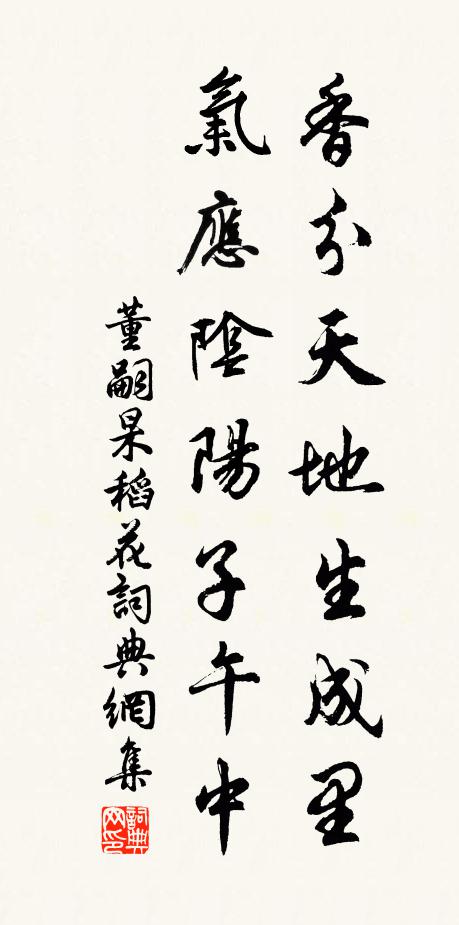 香分天地生成里
氣應陰陽子午中
董嗣杲稻花詞典網集
詞典网印